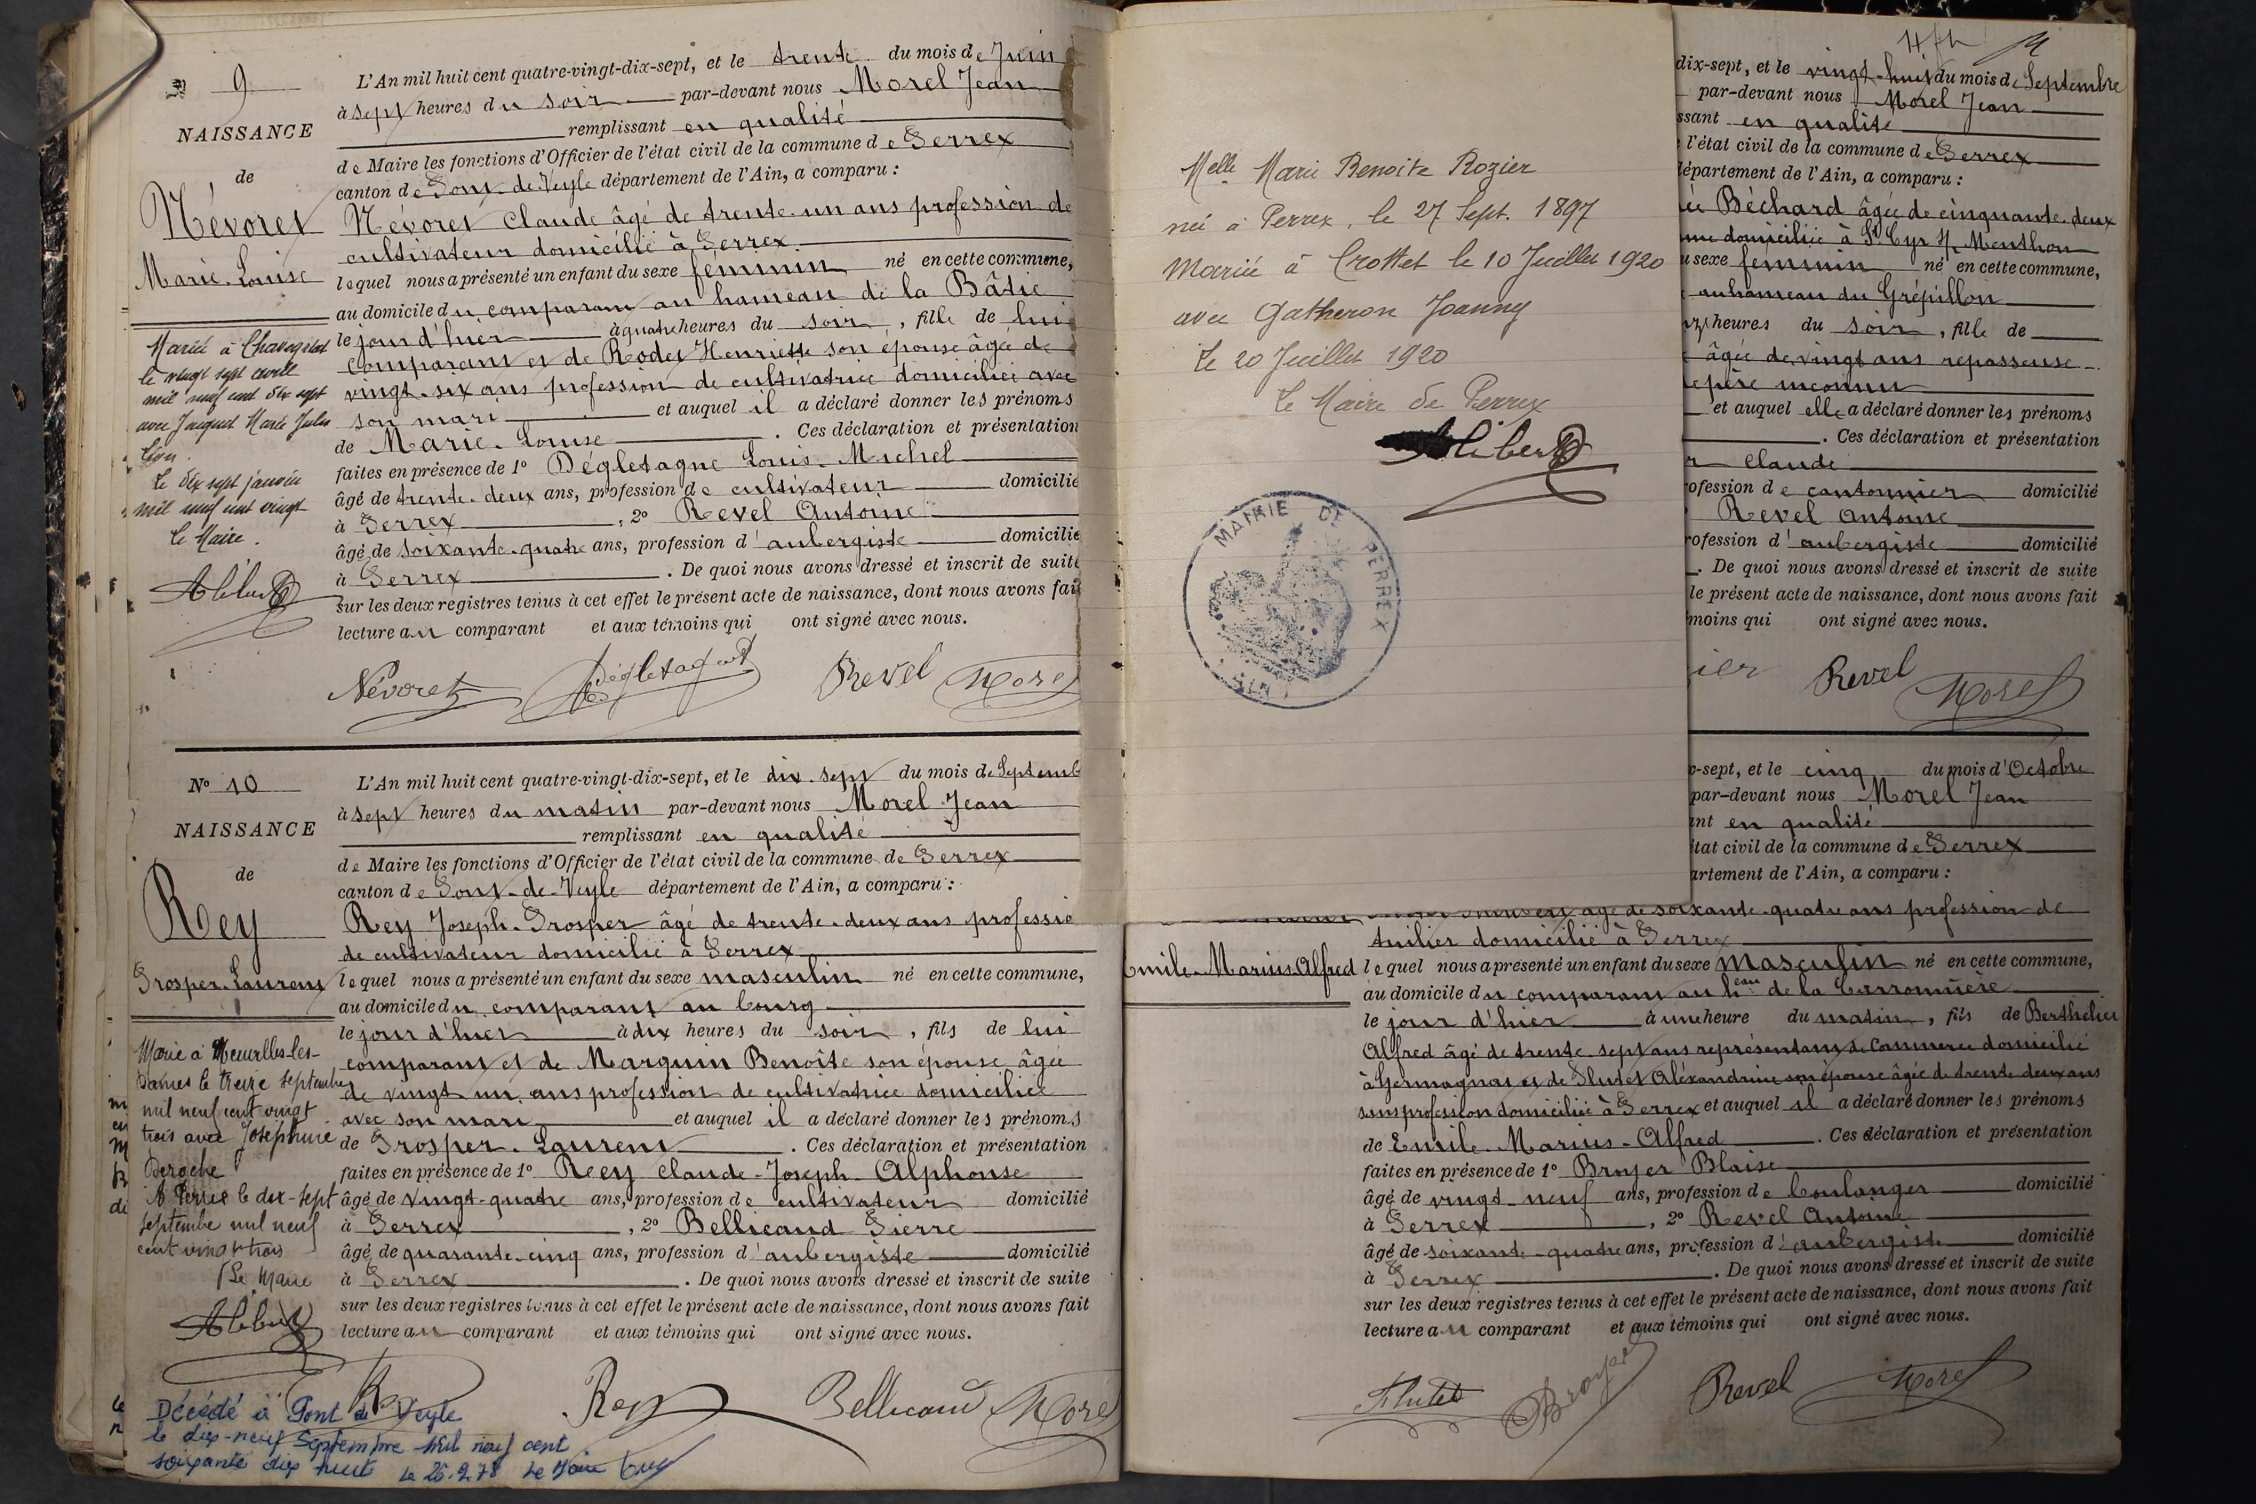 N° 9
NAISSANCE
de
Névoret
Marie-Louise
Mariée à Chavagnat
le vingt sept avril
mil neuf cent dix sept
avec Jacquet Marie Jules
Léon.
Le dix sept janvier
mil neuf cent vingt
Le Maire.
L'An mil huit cent quatre-vingt-dix-sept, et le trente du mois de Juin
à sept heures du soir par-devant nous Morel Jean
remplissant en qualité
de Maire les fonctions d'Officier de l'état civil de la commune de Perrex
canton de Pont-de-Veyle département de l'Ain, a comparu :
Névoret Claude âgé de trente-un ans profession de
cultivateur domicilié à Perrex
lequel nous a présenté un enfant du sexe féminin né en cette commune,
au domicile du comparant au hameau de la Bâtie
le jour d'hier à quatre heures du soir, fille de lui
comparant et de Rodet Henriette son épouse âgée de
vingt-six ans profession de cultivatrice domiciliée avec
son mari et auquel il a déclaré donner les prénoms
de Marie-Louise. Ces déclaration et présentation
faites en présence de 1° Dégletagne Louis-Michel
âgé de trente-deux ans, profession de cultivateur domicilié
à Perrex, 2° Revel Antoine
âgé de soixante-quatre ans, profession d'aubergiste domicilié
à Perrex. De quoi nous avons dressé et inscrit de suite
sur les deux registres tenus à cet effet le présent acte de naissance, dont nous avons fait
lecture au comparant et aux témoins qui ont signé avec nous.
Névoret Dégletagne Revel Morel
N° 10
NAISSANCE
de
Rey
Prosper-Laurent
Marié à
Dames le treize septembre
mil neuf cent vingt
trois avec Joséphine
Deroche
A Perrex le dix-sept
septembre mil neuf
cent vingt trois
Le Maire
L'An mil huit cent quatre-vingt-dix-sept, et le dix-sept du mois de Septemb
à sept heures du matin par-devant nous Morel Jean
remplissant en qualité
de Maire les fonctions d'Officier de l'état civil de la commune de Perrex
canton de Pont-de-Veyle département de l'Ain, a comparu :
Rey Joseph-Prosper âgé de trente-deux ans professio
de cultivateur domicilié à Perrex
lequel nous a présenté un enfant du sexe masculin né en cette commune,
au domicile du comparant au bourg
le jour d'hier à dix heures du soir, fils de lui
comparant et de Marguin Benoîte son épouse âgée
de vingt un ans profession de cultivatrice domiciliée
avec son mari et auquel il a déclaré donner les prénoms
de Prosper-Laurent. Ces déclaration et présentation
faites en présence de 1° Rey Claude-Joseph-Alphonse
âgé de vingt-quatre ans, profession de cultivateur domicilié
à Perrex, 2° Bellicaud Pierre
âgé de quarante-cinq ans, profession d'aubergiste domicilié
à Perrex. De quoi nous avons dressé et inscrit de suite
sur les deux registres tenus à cet effet le présent acte de naissance, dont nous avons fait
lecture au comparant et aux témoins qui ont signé avec nous.
Rey Rey Bellicaud Morel
Décédé à Pont de Veyle
le dix-neuf Septembre Mil neuf cent
soixante dix huit le 25.9.78 Le Maire
Melle Marie Benoite Rozier
née à Perrex, le 27 Sept. 1897
mariée à Crottet le 10 Juillet 1920
avec Gatheron Joanny
Le 20 Juillet 1920
Le Maire de Perrex
MAIRIE DE PERREX
AIN
dix-sept, et le vingt-huit du mois de Septembre
par-devant nous Morel Jean
ssant en qualité
l'état civil de la commune de Perrex
département de l'Ain, a comparu :
Béchard âgée de cinquante-deux
domiciliée à St Cyr s/ Menthon
u sexe féminin né en cette commune,
au hameau du Grépillon
heures du soir, fille de
âgée de vingt ans repasseuse
père inconnu
et auquel elle a déclaré donner les prénoms
. Ces déclaration et présentation
Claude
ofession de cantonnier domicilié
Revel Antoine
rofession d'aubergiste domicilié
. De quoi nous avons dressé et inscrit de suite
le présent acte de naissance, dont nous avons fait
moins qui ont signé avec nous.
ier Revel Morel
-sept, et le cinq du mois d'Octobre
par-devant nous Morel Jean
ant en qualité
état civil de la commune de Perrex
artement de l'Ain, a comparu :
âgé de soixante-quatre ans profession de
tuilier domicilié à Perrex
Emile-Marius-Alfred
lequel nous a présenté un enfant du sexe masculin né en cette commune,
au domicile du comparant au heau de la Carronnière
le jour d'hier à une heure du matin, fils de Berthelier
Alfred âgé de trente-sept ans représentant de Commerce domicilié
à Germagnat et de Flutet Aléxandrine son épouse âgée de trente deux ans
sans profession domiciliée à Perrex et auquel il a déclaré donner les prénoms
de Emile-Marius-Alfred. Ces déclaration et présentation
faites en présence de 1° Broyer Blaise
âgé de vingt-neuf ans, profession de boulanger domicilié
à Perrex, 2° Revel Antoine
âgé de soixante-quatre ans, profession d'aubergiste domicilié
à Perrex. De quoi nous avons dressé et inscrit de suite
sur les deux registres tenus à cet effet le présent acte de naissance, dont nous avons fait
lecture au comparant et aux témoins qui ont signé avec nous.
Flutet Broyer Revel Morel